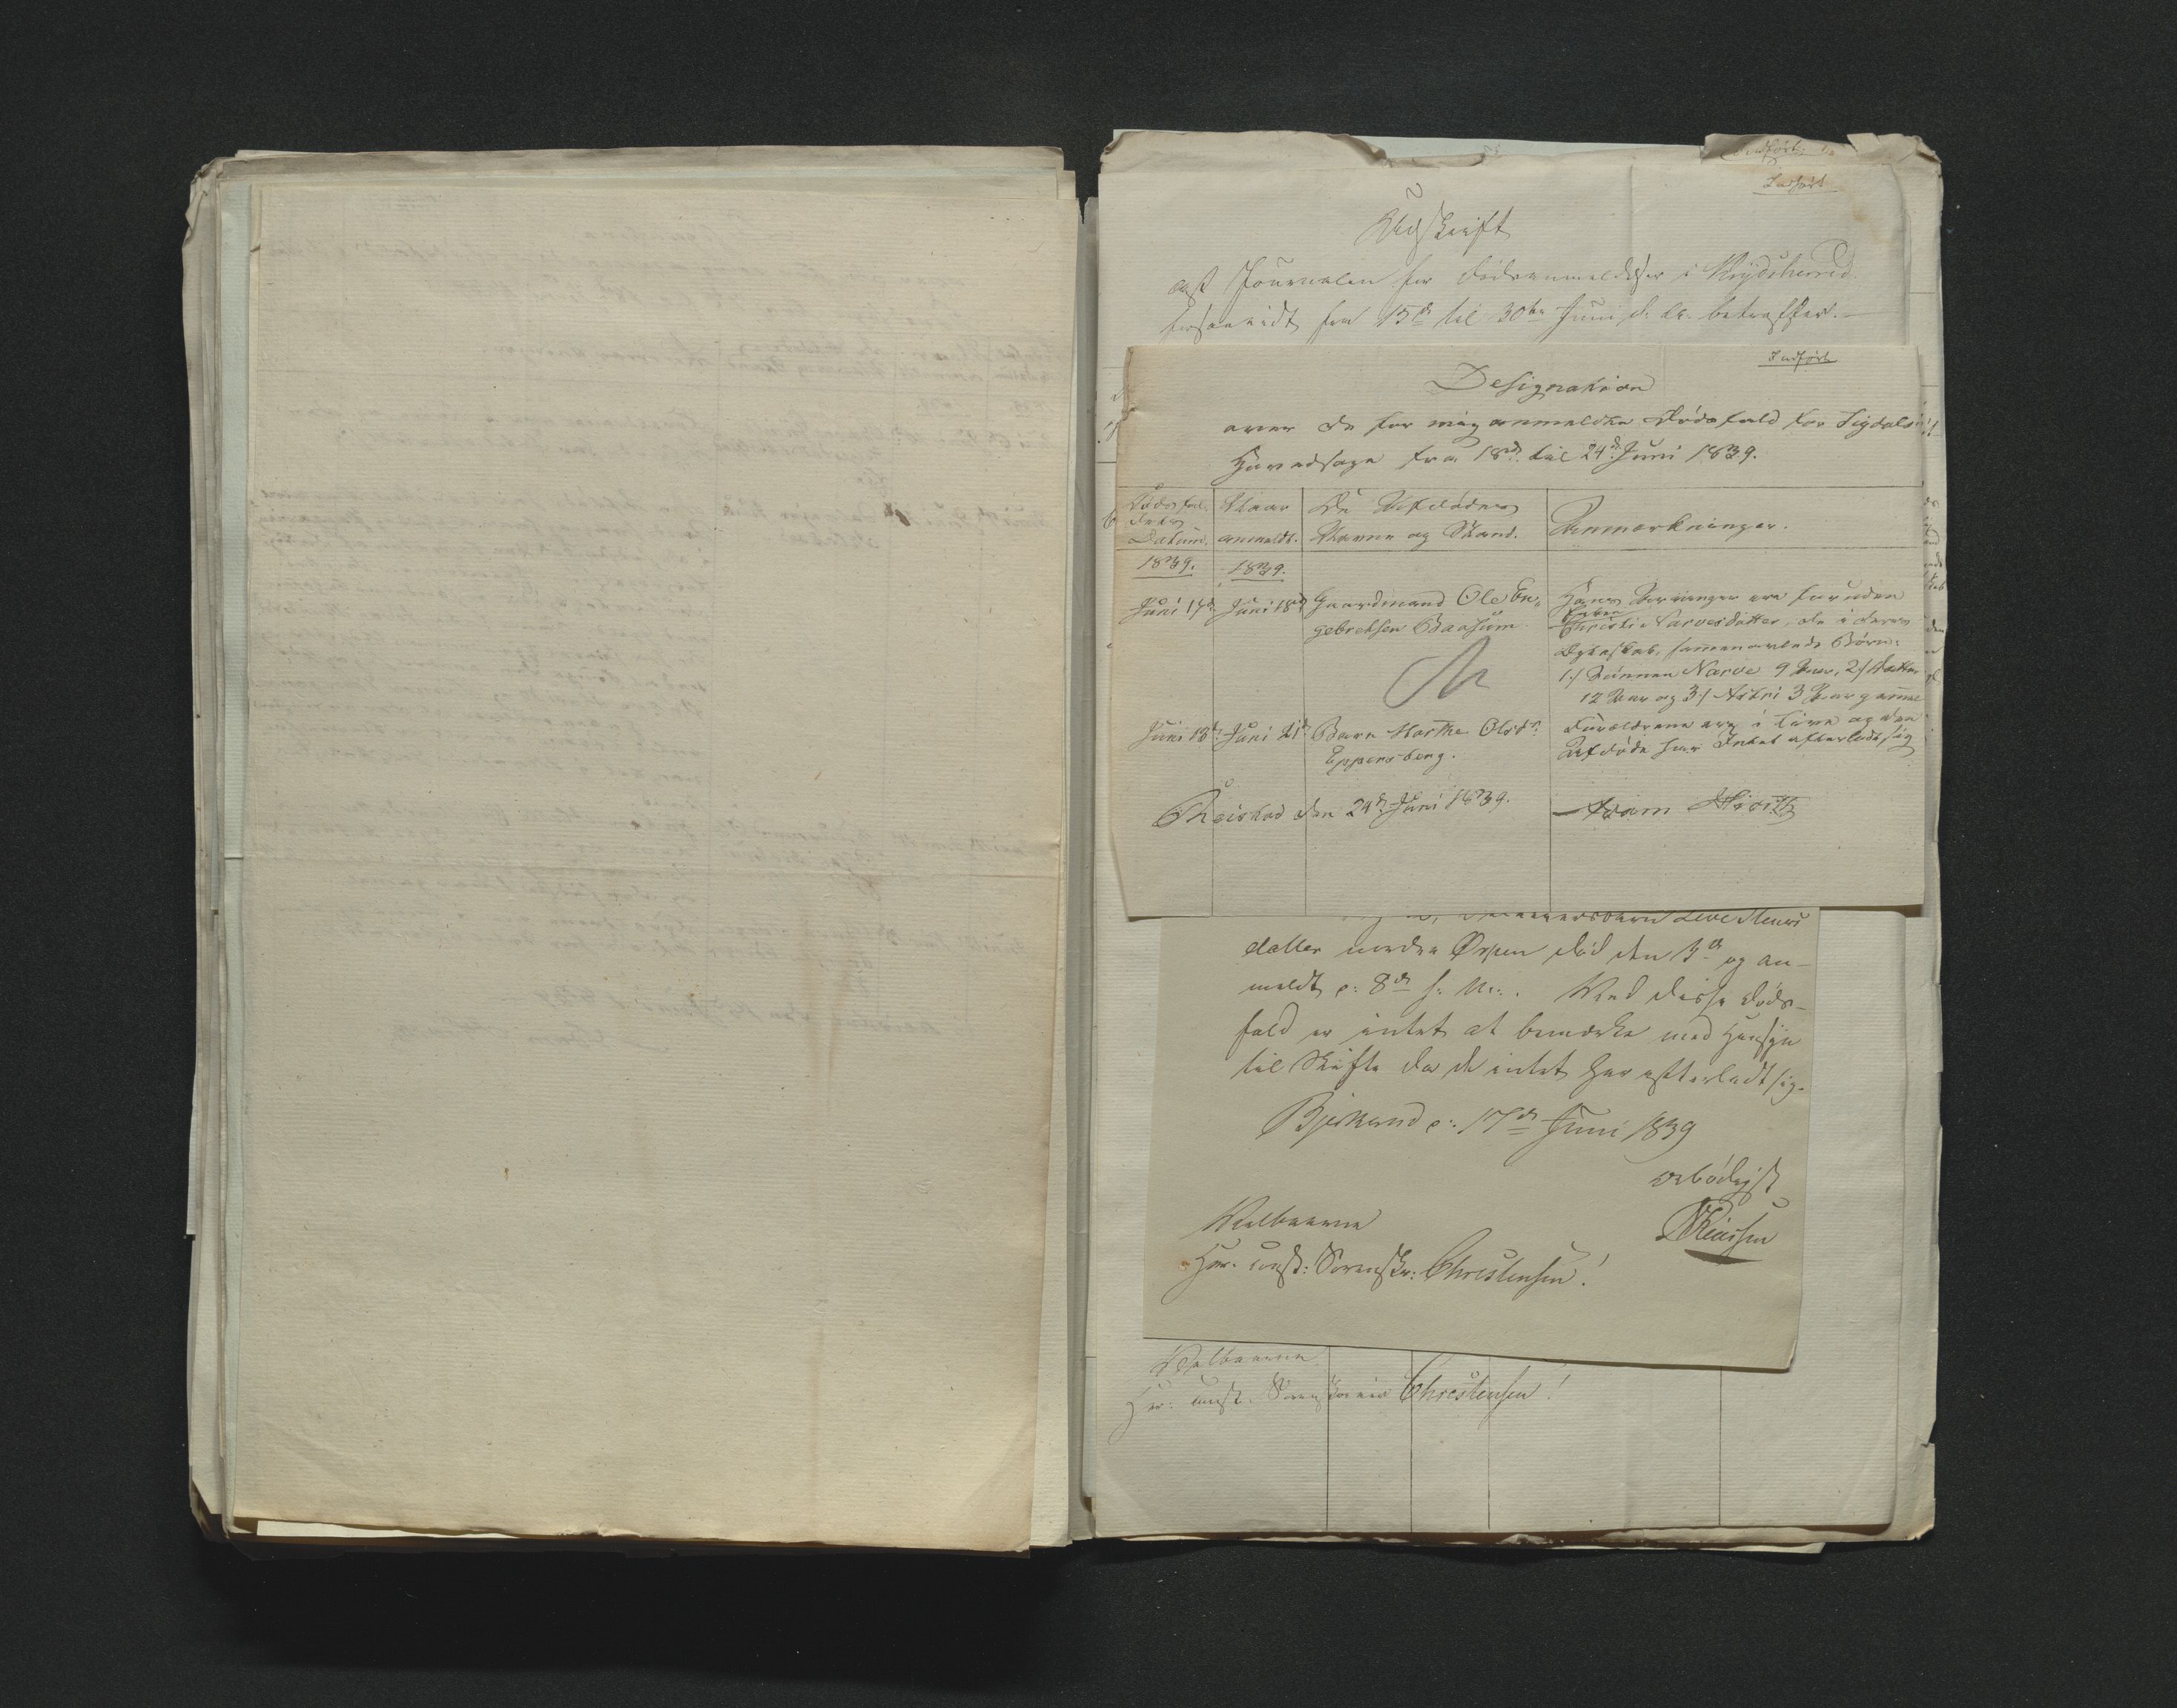 Indført
Indført
Udskrift
af Journalen for Dødsanmeldelser i Krydsherred
forsaavidt fra 15de til 30te Juni d. A. betræffer.
Indført
Designation
over de for mig anmeldte Dødsfald for Sigdals
Hovedsogn fra 18de til 24de Juni 1839.
Dødsfal-
dets
Datum.
Naar
anmeldt.
De Afdødes
Navne og Stand.
Anmærkninger.
1839.
1839.
Juni 17de
Juni 18de
Gaardmand Ole En-
gebretsen Baasum
Hans Arvinger ere foruden
Enken
Christi Narvesdatter, de i deres
Ægteskab sammenavlede Børn:
1/ Sønnen Narve 9 Aar, 2/
12 Aar og 3/ Astri 3 Aar gammel
Juni 13de
Juni 21de
Barn Marthe Olsdr.
Eppersberg.
Forældrene ere i Live og den
Afdøde har Intet efterladt sig
den 24de Juni 1839.
datter nordre Ørpen død den 3de og an-
meldt d: 8de s: M:. Ved disse Døds-
fald er intet at bemærke med Hensyn
til Skifte da de intet har efterladt sig.
Bjerkerud d: 17de Juni 1839
ærbødigst
Velbaarne
Hr. const: Sorenskr: Christensen!
Velbaarne
Hr: const. Sorenskriver Christensen!